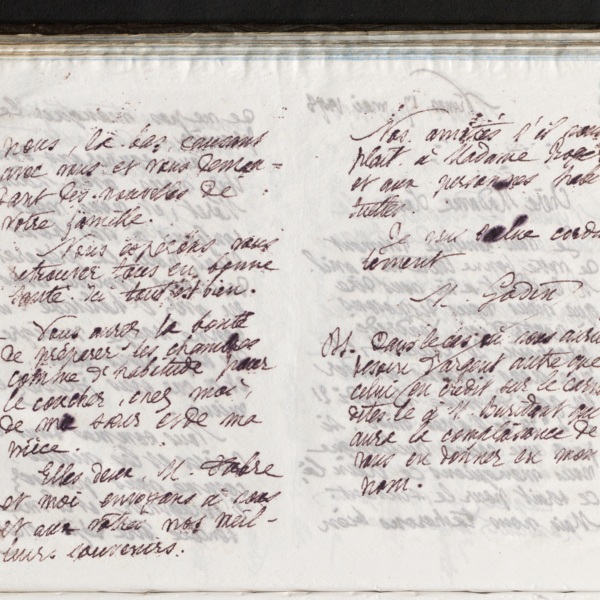 nous, là bas, causant
avec nous et vous deman-
dant des nouvelles de
votre famille.
Nous espérons vous
retrouver tous en bonne
santé. Ici tout est bien.
Vous aurez la bonté
de préparer les chambres
comme d'habitude pour
le coucher, chez moi,
de ma sœur et de ma
nièce.
Elles deux, M. Fabre
et moi envoyons à vous
et aux vôtres nos meil-
leurs souvenirs.
Nos amitiés s'il vous
plait à Madame
et aux personnes habi
tuelles.
Je vous salue cordia
lement
M. Godin
PS. Dans le cas où vous auriez
besoin d'argent autre que
celui en crédit sur le carnet
dites-le à M. Buridant qui
aura la complaisance de
vous en donner en mon
nom.